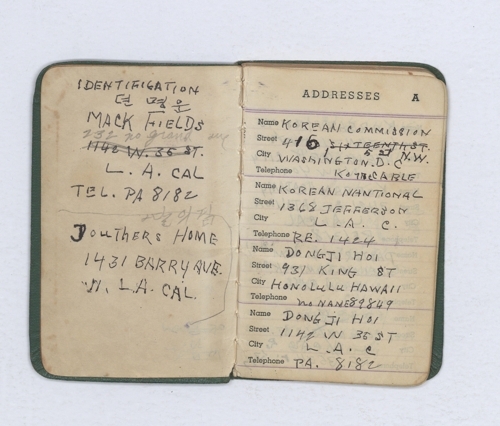 IDENTIFIGATION
뎐 명 운
MACK FIELDS
232 no grand ave
1146 W. 35 ST.
L. A. CAL
TEL. PA 8182
DOUTHERS HOME
1431 BARRY AVE.
W. L.A. CAL.
ADDRESSES A
Name KOREAN COMMISSION
Street 416 SIXTEENTH ST.
City WASHINGTON.D.C N.W.
Telephone CABLE
Name KOREAN NANTIONAL
Street 1368 JEFFERSON
City L. A. C.
Telephone RE. 1424
Name DONGJI HOI
Street 931 KING ST
City HONOLULU HAWAII
Telephone 89849
Name DONGJI HOI
Street 1142 W 35 ST
City L. A. C
Telephone PA. 8182